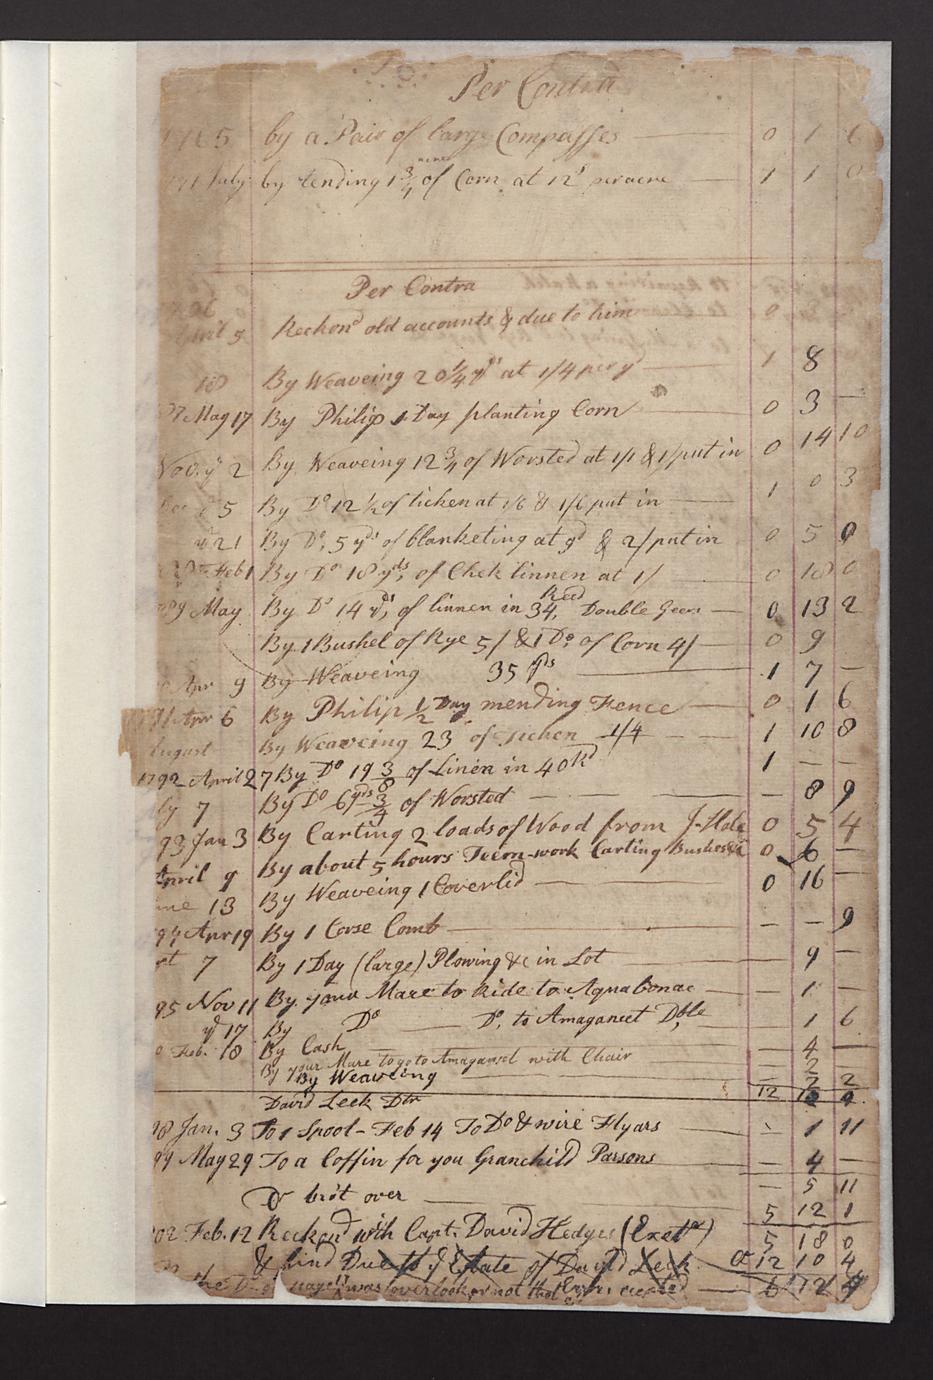 Per Contra
1765 by a Pair of large Compasses 0 1 6
July by tending 1 3/4 acres of Corn at 12s per acre 1 1 0
Per Contra
April 5 Reckond old accounts & due to him 0
18 By Weaveing 20 1/4 yds at 1/4 per yd 1 8
87 May 17 By Philip 1 Day planting Corn 0 3 —
Nov. ye 2 By Weaveing 12 3/4 of Worsted at 1/1 & 1/ put in 0 14 10
25 By Do 12 1/2 of ticken at 1/6 & 1/6 put in 1 0 3
ye 21 By Do 5 yds of blanketing at 9d & 2/ put in 0 5 9
Feb 1 By Do 18 yds, of Chek linnen at 1/ 0 18 0
89 May By Do 14 yds, of linnen in 34, Reed Double Geer 0 13 2
By 1 Bushel of Rye 5/ & 1 Do of Corn 4/ 0 9
Apr 9 By Weaveing 35 yds 1 7 —
91 Apr 6 By Philip 1/2 Day mending Fence 0 1 6
August By Weaveing 23 of ticken 1/4 1 10 8
1792 April 27 By Do 19 3/8 of Linen in 40 Rd 1 — —
7 By Do 6 yds 3/4 of Worsted — 8 9
93 Jan 3 By Carting 2 loads of Wood from J. Hole 0 5 4
April 9 By about 5 hours Teem-work Carting Bushes &c 0 6 —
June 13 By Weaveing 1 Coverlid 0 16 —
94 Apr 19 By 1 Corse Comb — — 9
7 By 1 Day (large) Plowing &c in Lot — 9 —
95 Nov 11 By your Mare to Ride to Aquabonac — 1 —
ye 17 By Do Do, to Amaganset Dble — 1 6
Feb. 18 By Cash — 4 —
By your Mare to go to Amaganset with Chair — 2 —
By Weaveing — 7 2
David Leek Dtr 12
98 Jan. 3 To 1 Spool - Feb 14 To Do & wire Flyars — 1 11
99 May 29 To a Coffin for you Granchild Parsons — 4 —
— 5 11
Dr brot over 5 12 1
02 Feb. 12 Reckond with Capt. David Hedges (Exetr) 5 18 0
& find Due to ye Estate of David Leek Cr 12 10 4
was overlookd 6 12 4